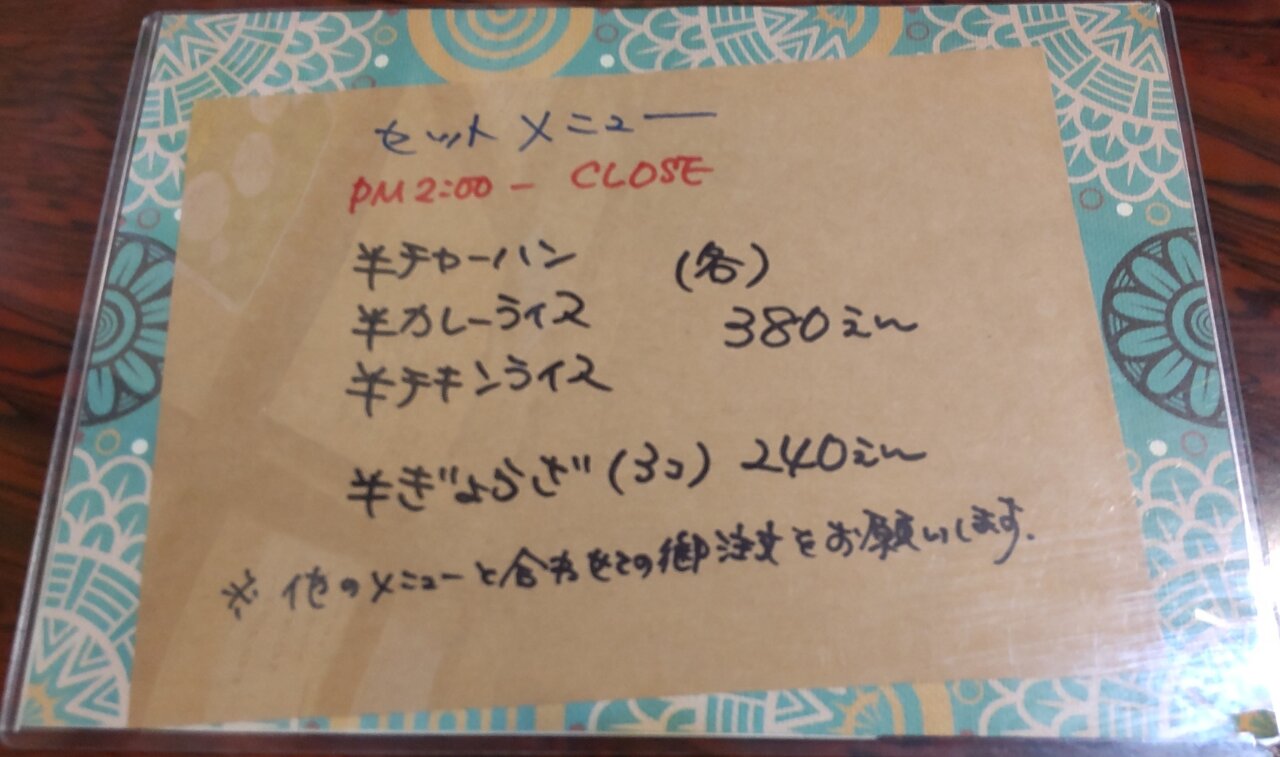 セットメニュー
PM2:00 - CLOSE
半チャーハン (各)
半カレーライス 380えん
半チキンライス
半ぎょうざ(3コ) 240えん
※ 他のメニューと合わせての御注文をお願いします.